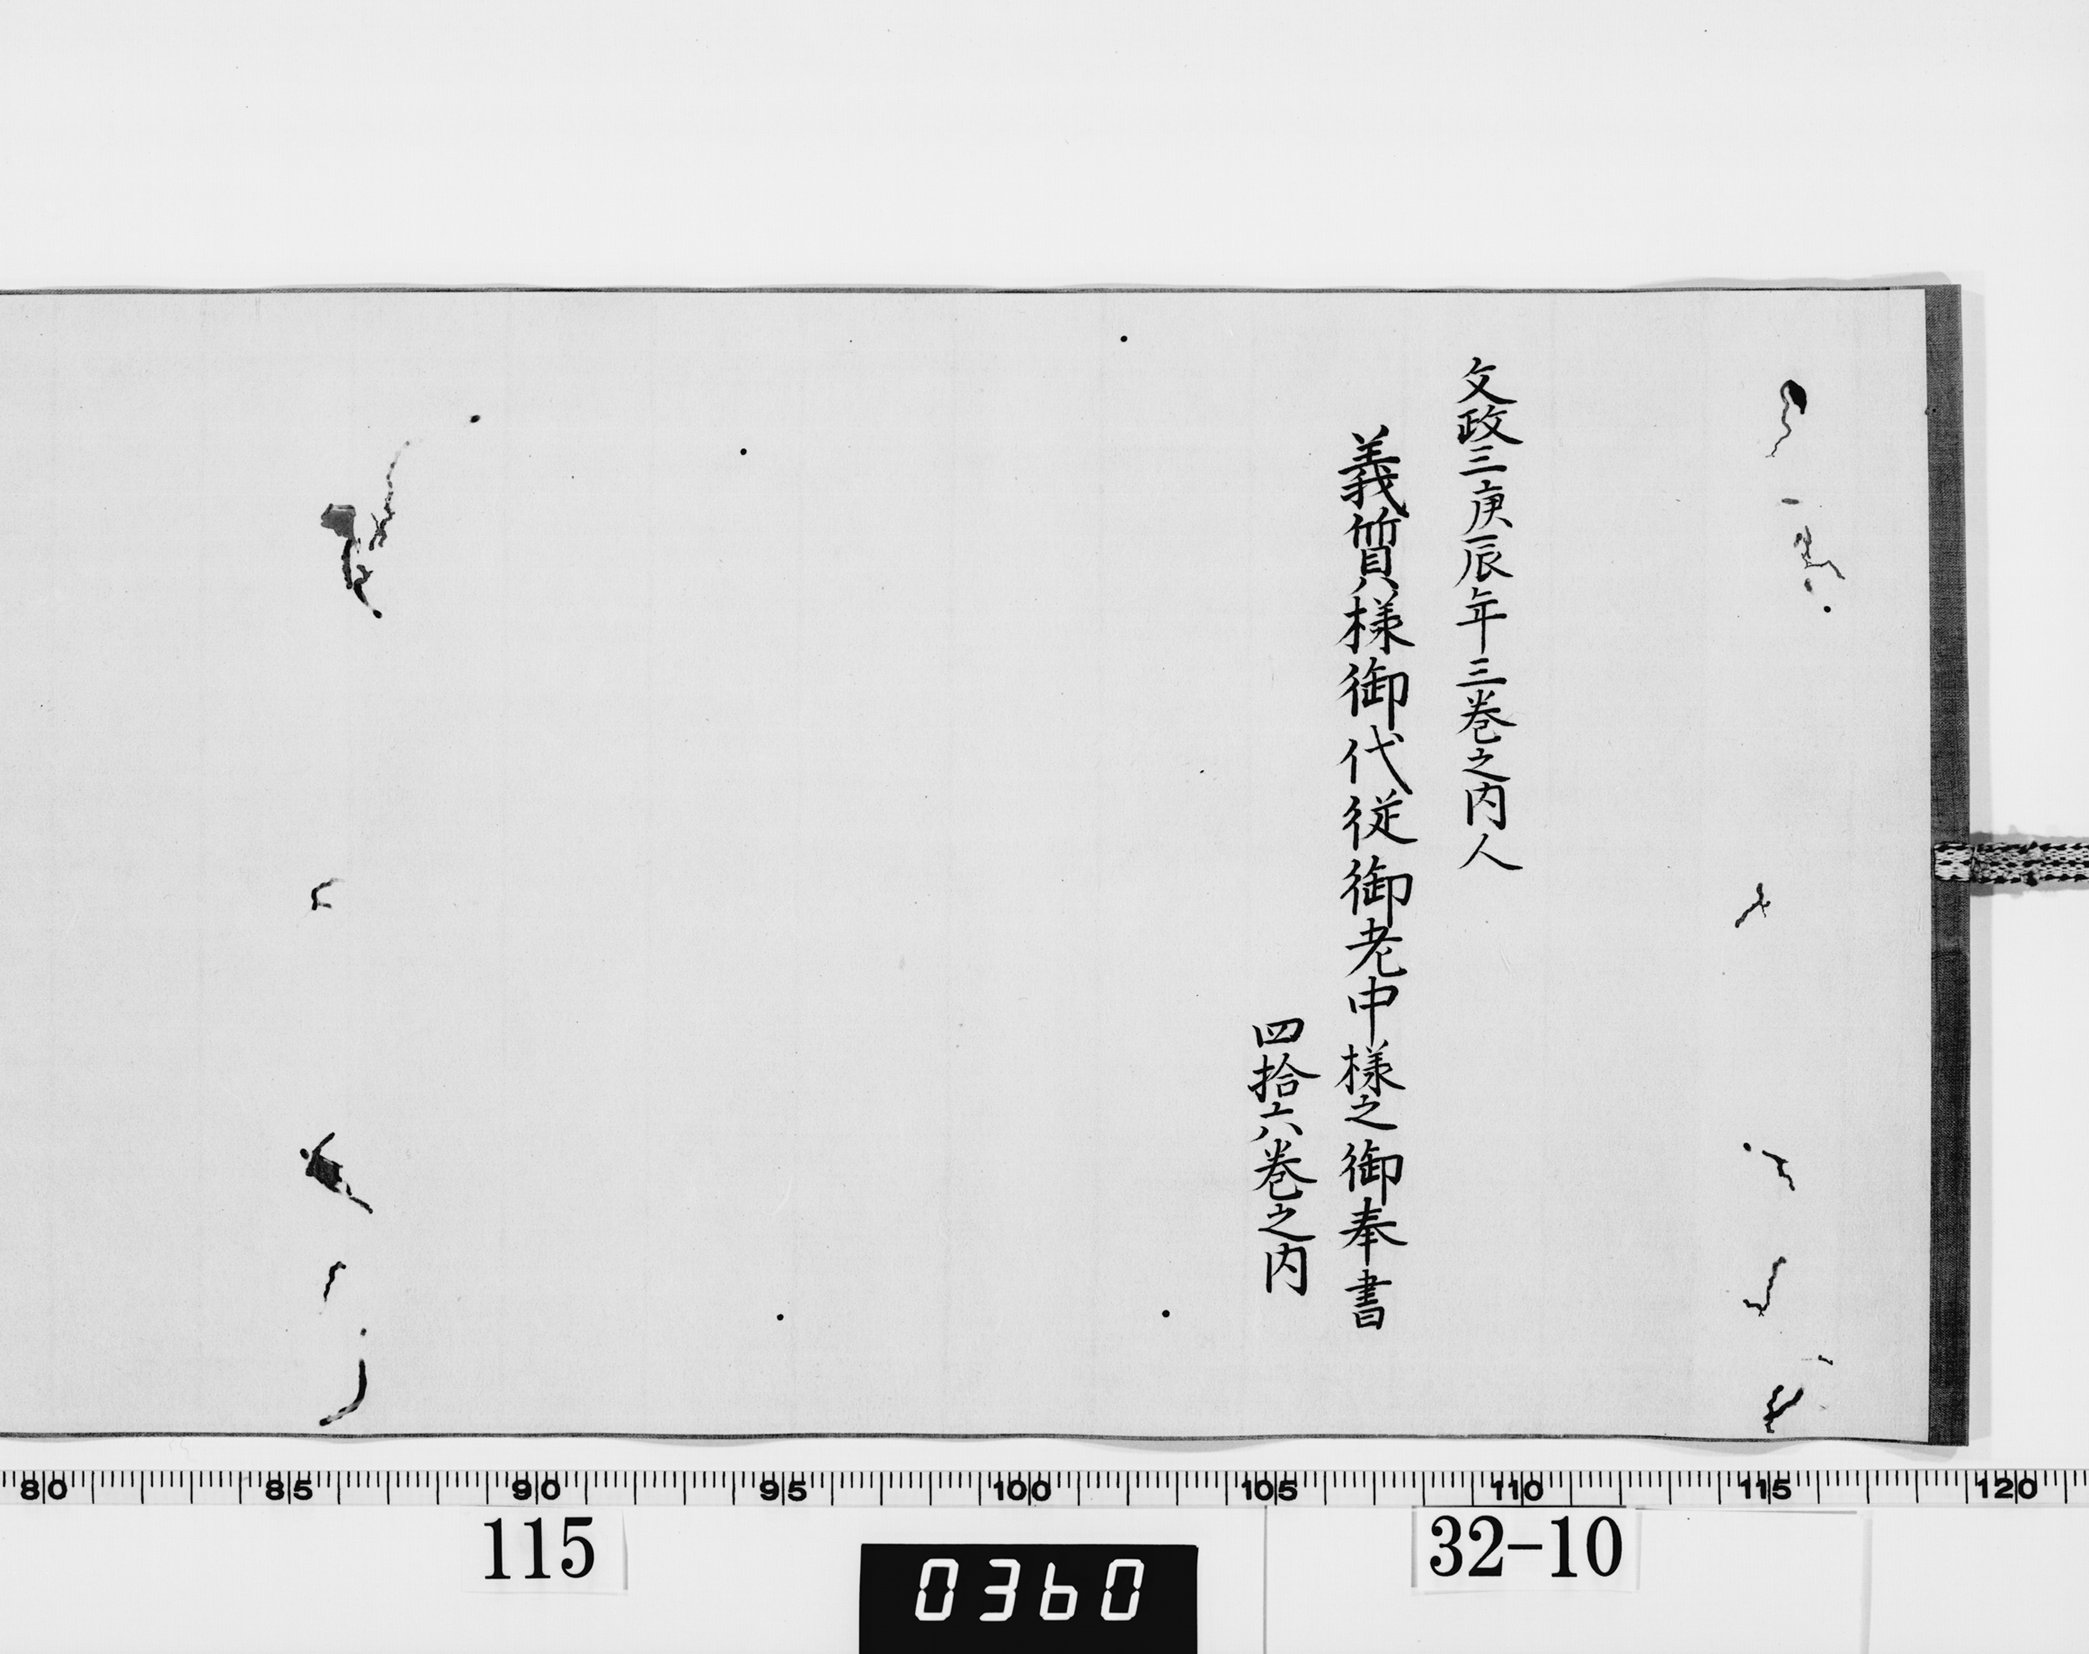 文政三庚辰年三巻之内人
義質様御代従御老中様之御奉書
四拾六巻之内
80 85 90 95 100 105 110 115 120
115
0360
32-10